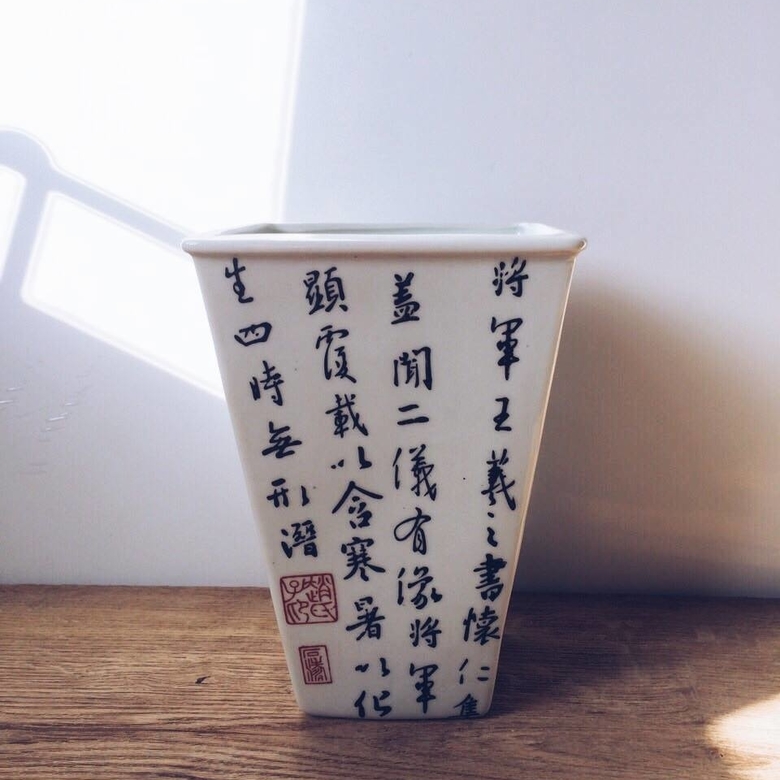 將軍王羲之書懷仁集
蓋聞二儀有像將軍
顯覆載以含寒暑以化
生四時無形潛